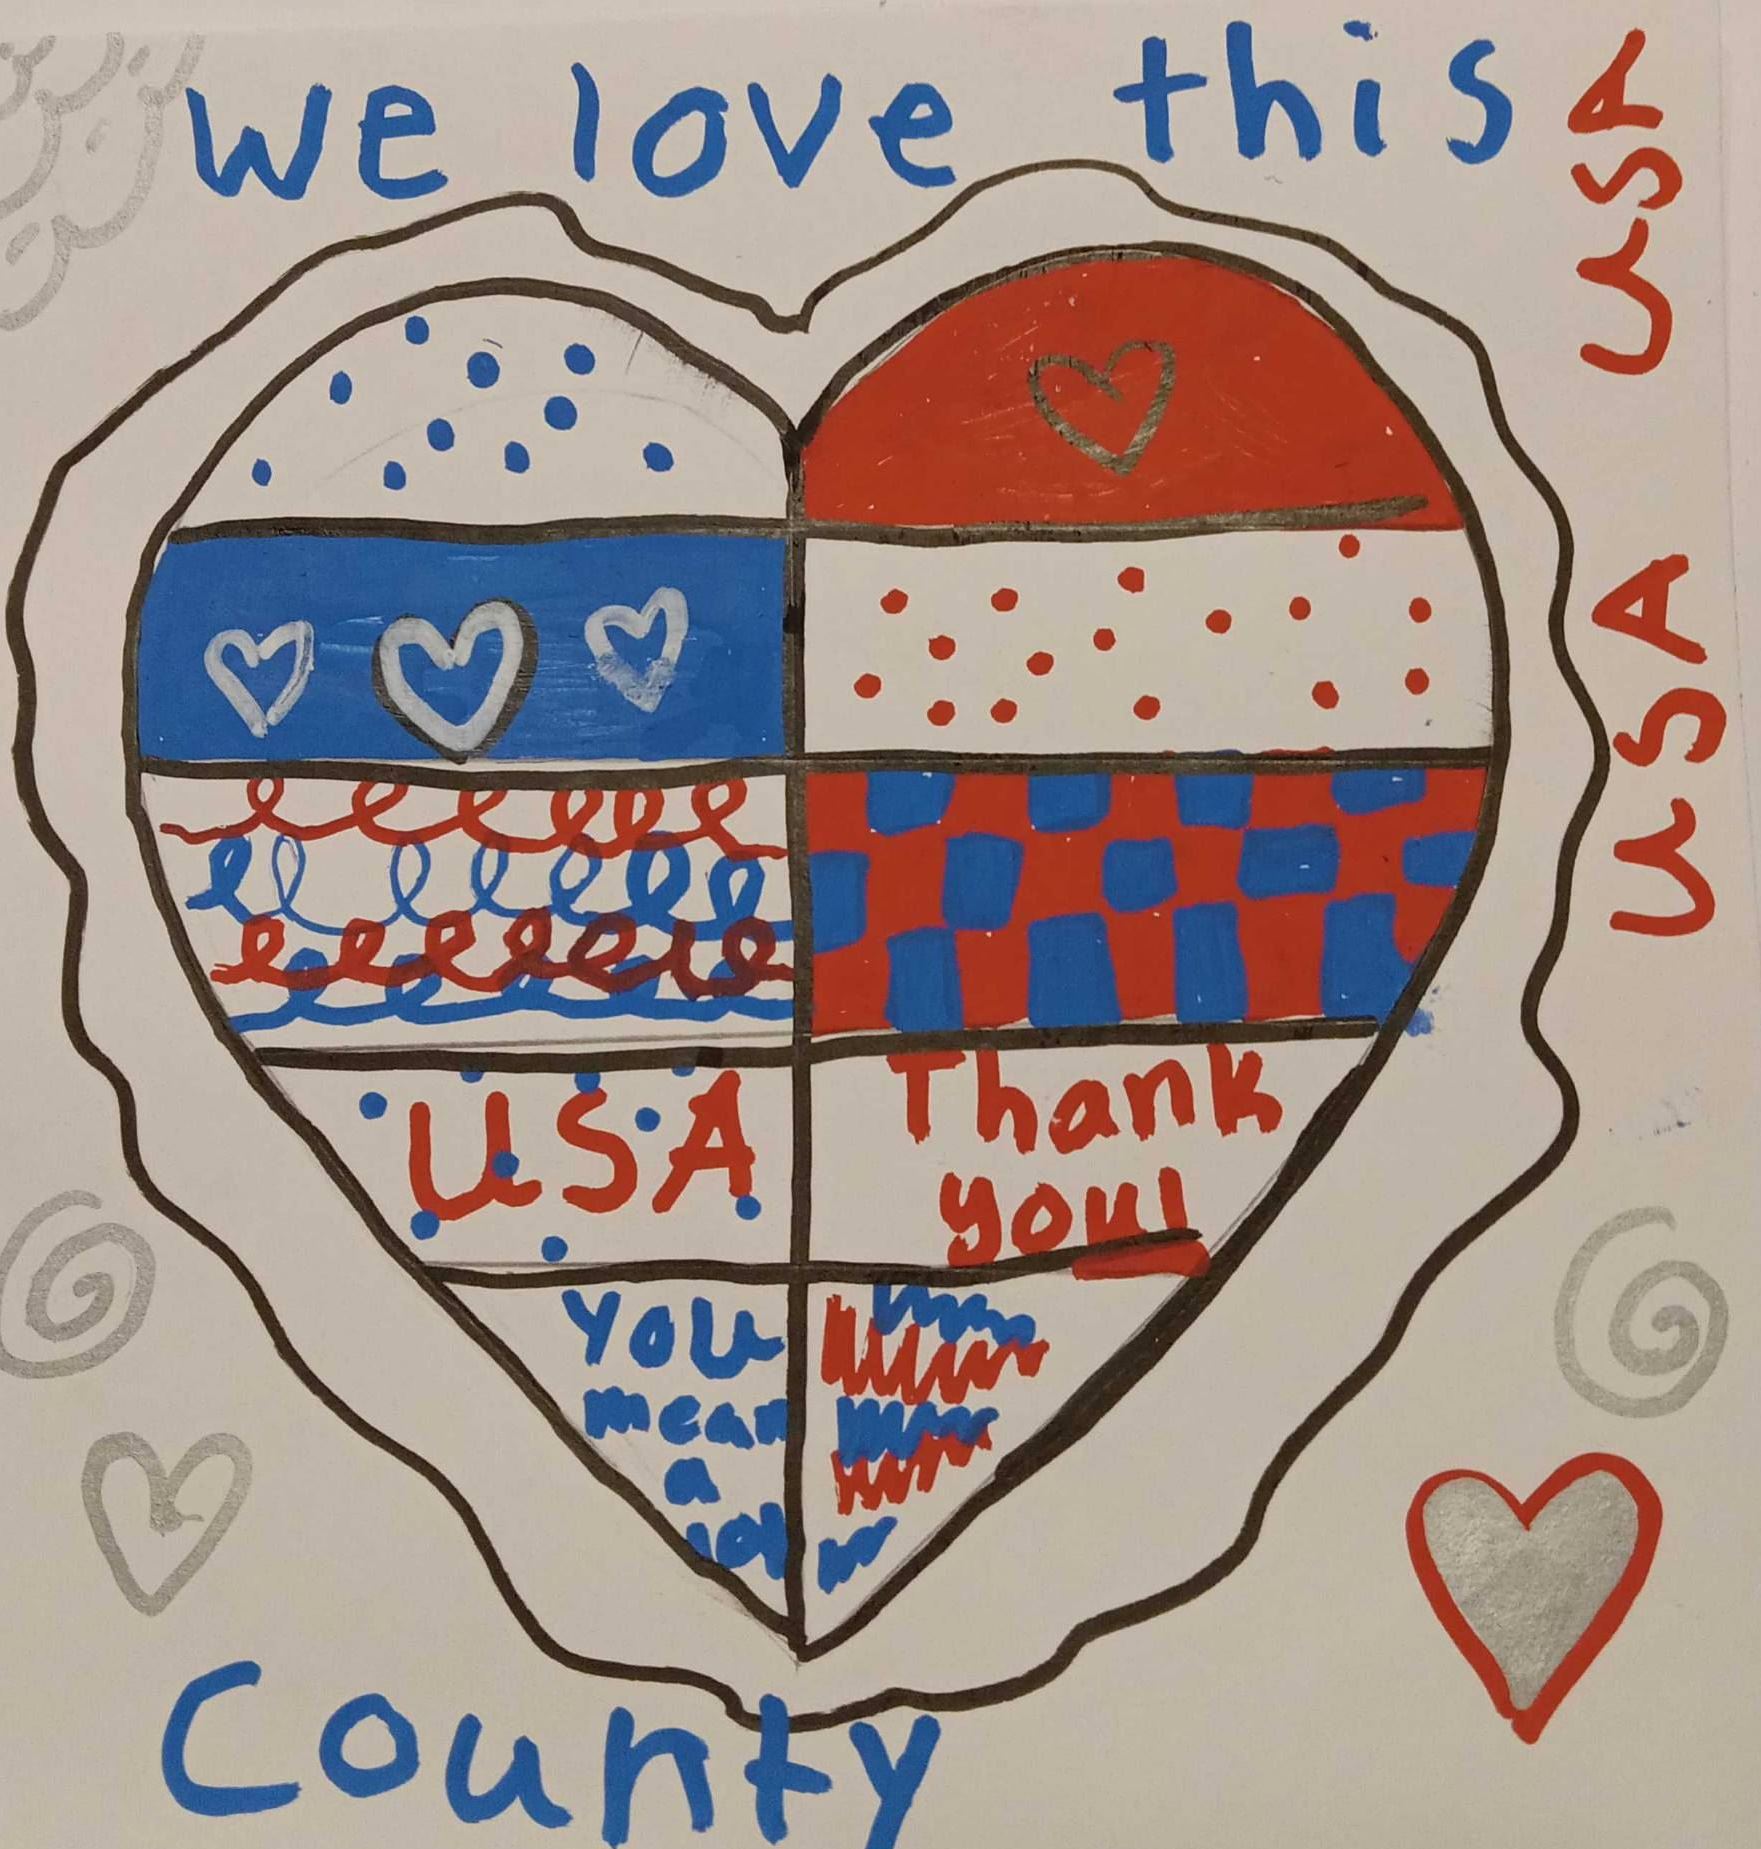 we love this
USA USA
USA
Thank
you!
you
mean
a
lot
County